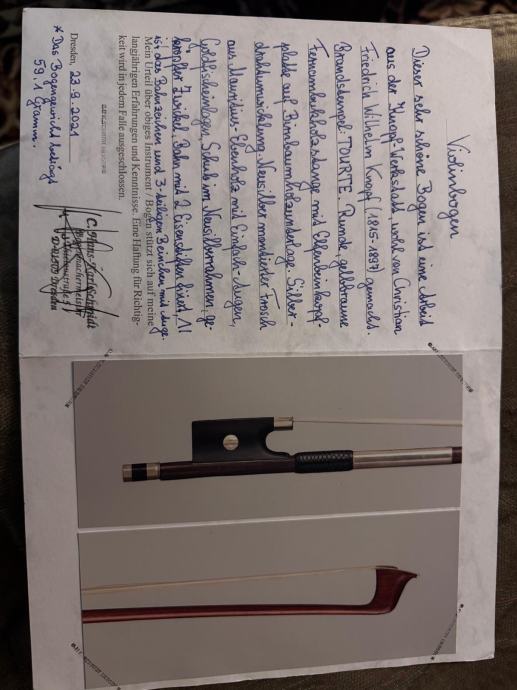 Violinbogen
Dieser sehr schöne Bogen ist eine Arbeit
aus der Knopf-Werkstatt, wohl von Christian
Friedrich Wilhelm Knopf (1815-1897) gemacht.
Brandstempel: TOURTE. Runde, gelbbraune
Fernambukholzstange mit Elfenbeinkopf-
platte auf Birnbaumholzunterlage. Silber-
drahtumwicklung. Neusilber montierter Frosch
aus Mauritius-Ebenholz mit Einfach-Augen,
Goldfischeinlagen, Schub im Neusilberrahmen, ge-
Zwickel, Bahn mit 2 Eisenstiften fixiert, II
ist das Bahnzeichen und 3-teiligen Beinchen mit Auge.
Mein Urteil über obiges Instrument / Bogen stützt sich auf meine
langjährigen Erfahrungen und Kenntnisse. Eine Haftung für Richtig-
keit wird in jedem Falle ausgeschlossen.
Dresden, 23.9.2021
* Das Bogengewicht beträgt
59.1 Gramm.
Dresden